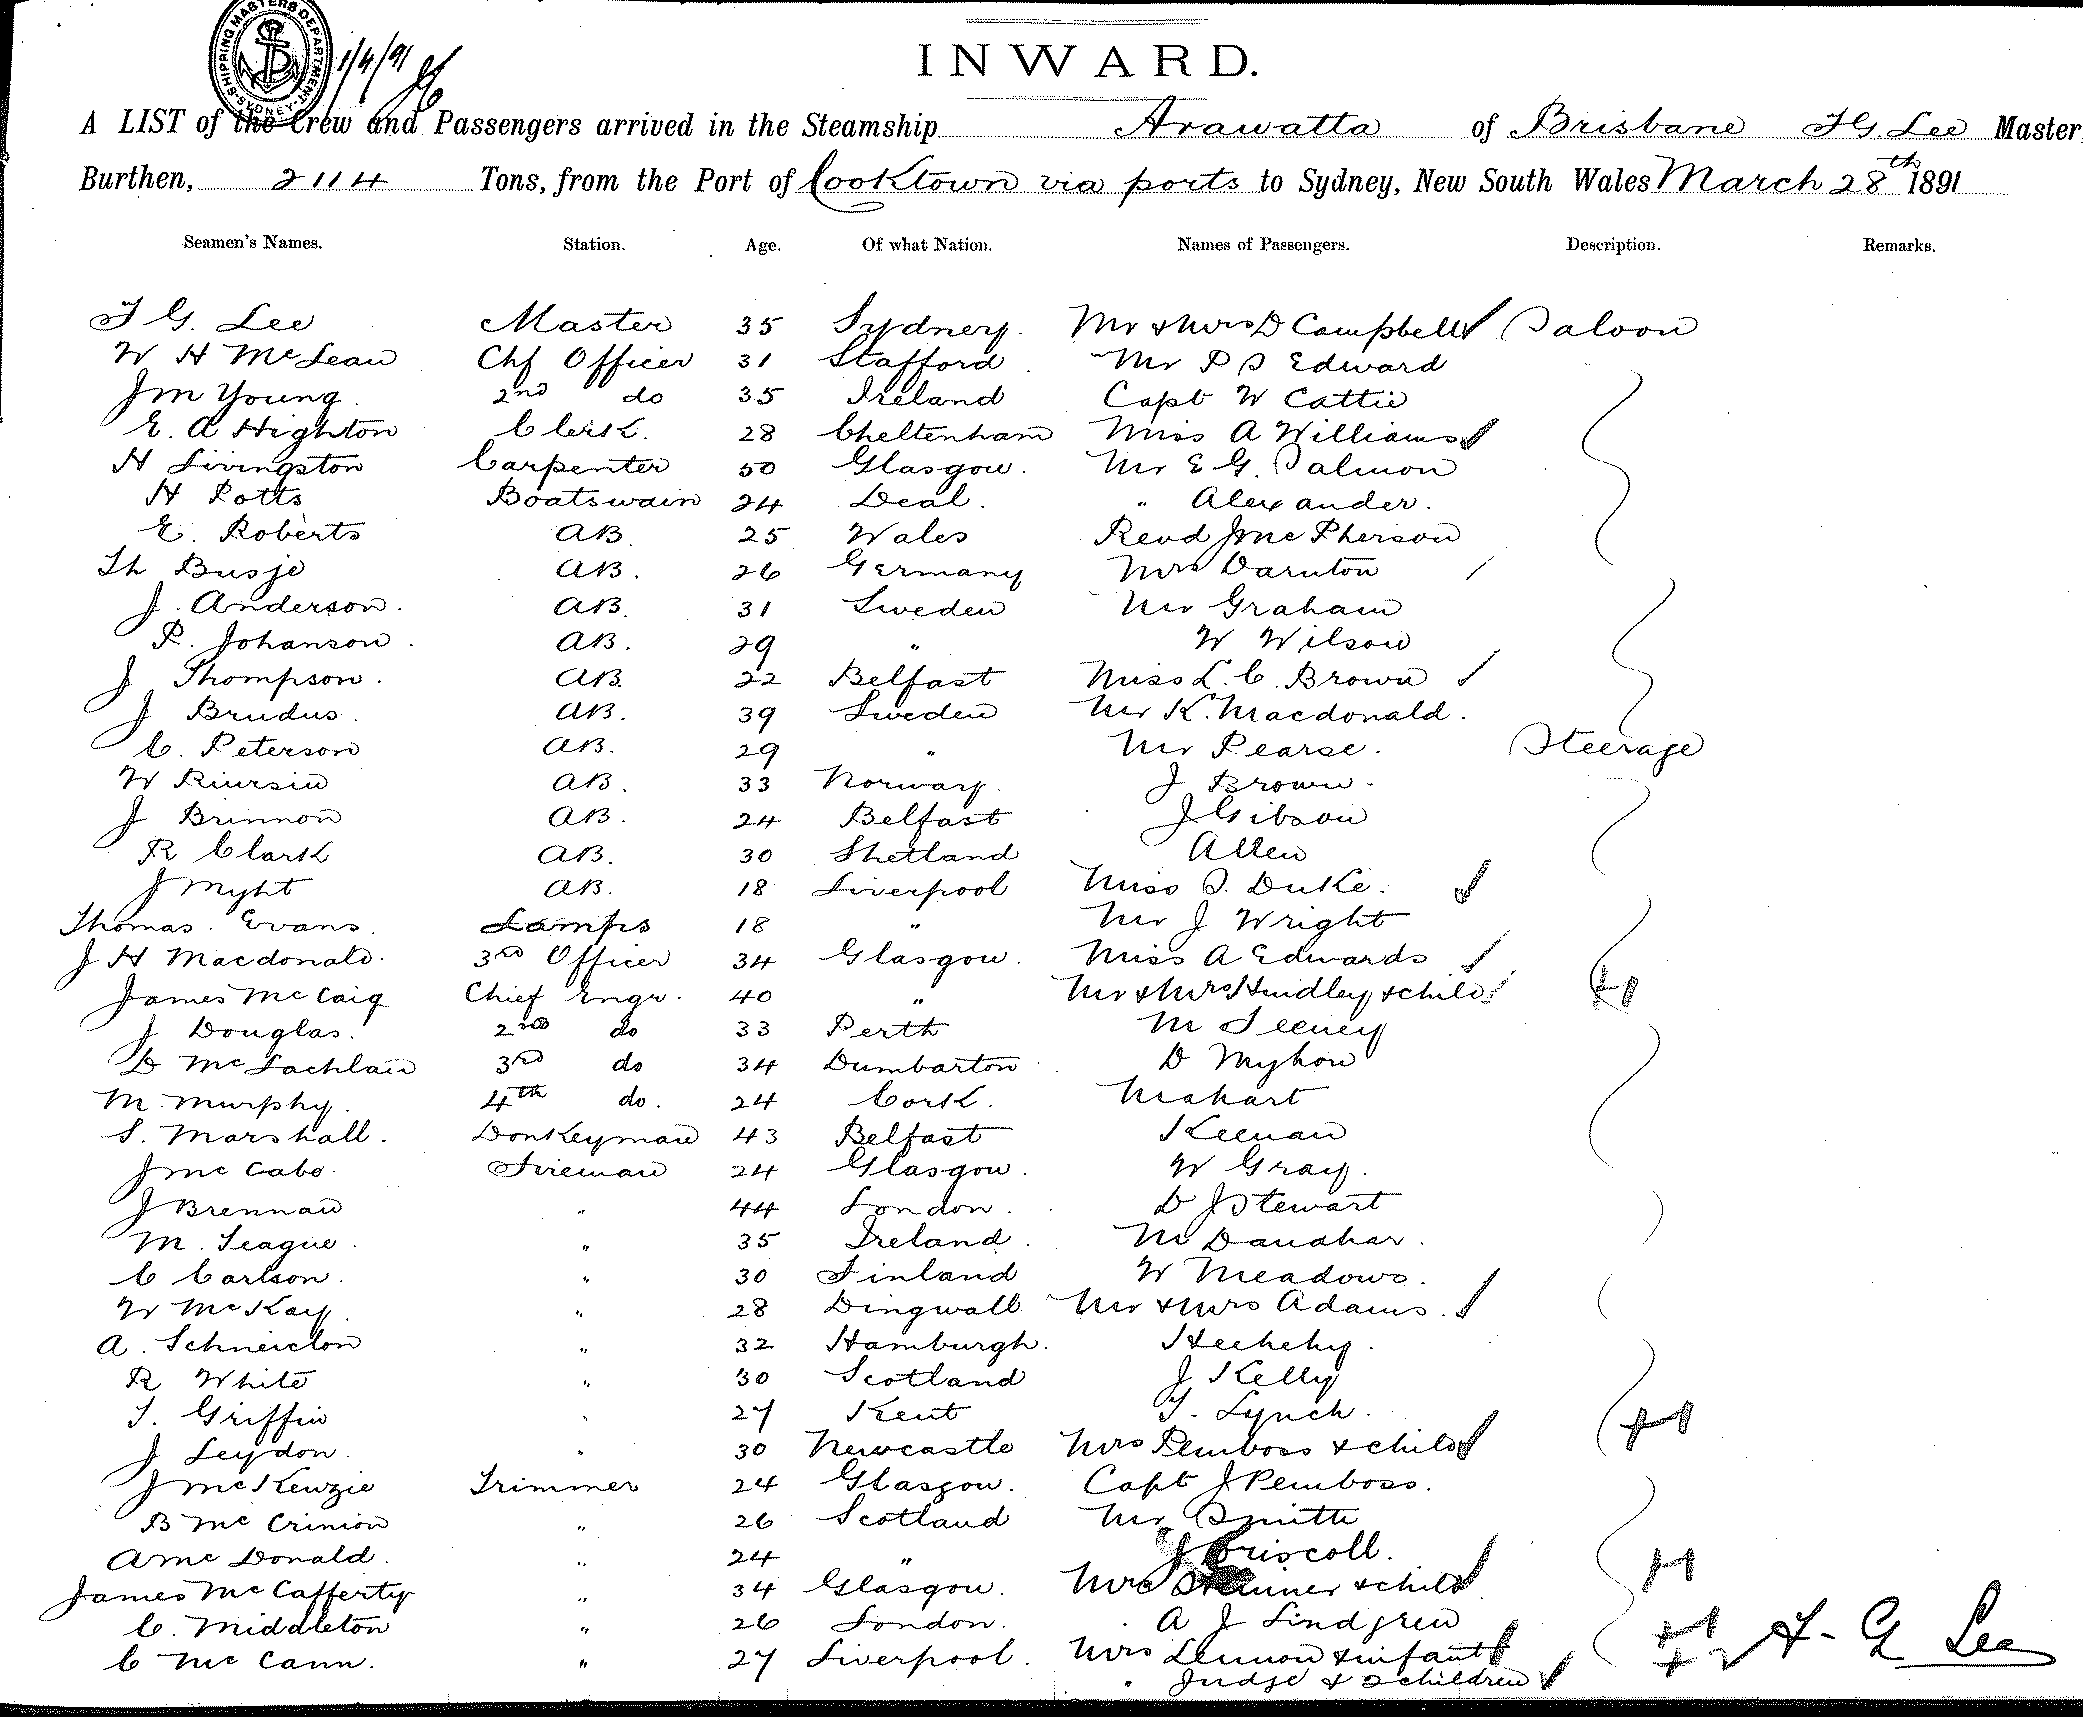 SHIPPING MASTERS DEPARTMENT SYDNEY
1/4/91
INWARD.
A LIST of the Crew and Passengers arrived in the Steamship Arawatta of Brisbane J G. Lee Master
Burthen, 2114 Tons, from the Port of Cooktown via ports to Sydney, New South Wales March 28th 1891
Seamen's Names. Station. Age. Of what Nation. Names of Passengers. Description. Remarks.
J G. Lee Master 35 Sydney. Mr & Mrs D Campbell Saloon
W H McLean Chf Officer 31 Stafford Mr P S Edward
J M Young 2nd do 35 Ireland Capt W Cattie
E. A Highton Clerk. 28 Cheltenham Miss A Williams
H Livingston Carpenter 50 Glasgow. Mr E G. Salmon
H Potts Boatswain 24 Deal. " Alexander.
E. Roberts AB 25 Wales Revd J Mc Pherson
Th Busje AB. 26 Germany Mrs Darnton
J. Anderson. AB. 31 Sweden Mr Graham
P. Johanson. AB. 29 " W Wilson
J Thompson. AB. 22 Belfast Miss L. C. Brown
J Brudus. AB. 39 Sweden Mr K. Macdonald.
C. Peterson AB. 29 " Mr Pearse. Steerage
W AB. 33 Norway. J Brown.
J Brinnon AB. 24 Belfast J Gibson
R Clark AB. 30 Shetland Allen
J Myht AB. 18 Liverpool Miss S. Duke.
Thomas. Evans. Lamps 18 " Mr J Wright
J H Macdonald. 3rd Officer 34 Glasgow. Miss A Edwards
James McCaig Chief Engr. 40 " Mr & Mrs Hindley & child
J Douglas. 2nd do 33 Perth M Seeney
D McLachlan 3rd do 34 Dumbarton D Myhon
M. Murphy. 4th do. 24 Cork.
S. Marshall. Donkeyman 43 Belfast Keenan
J Mc Cabe. Fireman 24 Glasgow. W Gray.
J Brennan " 44 London. D J Stewart
M. Teague. " 35 Ireland. M
C Carlson. " 30 Finland W Meadows.
W McKay " 28 Dingwall Mr & Mrs Adams.
A. " 32 Hamburgh.
R White " 30 Scotland J Kelly
T. Griffin " 27 Kent T. Lynch.
J Leydon. " 30 Newcastle Mrs Pemboss & child
J McKenzie Trimmer 24 Glasgow. Capt J Pemboss.
B Mc Crinion " 26 Scotland Mr Smith
A Mc Donald. " 24 " J Driscoll.
James Mc Cafferty " 34 Glasgow. Mrs & child
C. Middleton " 26 London. A J Lindgren
C Mc Cann. " 27 Liverpool. Mrs Lennon & infant J. G Lee
" Judge & 2 children